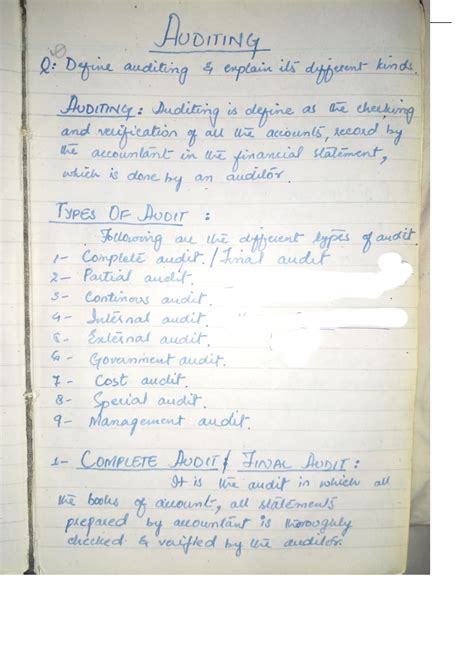 AUDITING
Q: Define auditing & explain its different kinds.
AUDITING: Auditing is define as the checking
and verification of all the accounts, record by
the accountant in the financial statement,
which is done by an auditor.
TYPES OF AUDIT :
Following are the different types of audit.
1- Complete audit. / Final audit
2- Partial audit.
3- Continous audit.
4- Internal audit.
5- External audit.
6- Government audit.
7- Cost audit.
8- Special audit.
9- Management audit.
1- COMPLETE AUDIT / FINAL AUDIT :
It is the audit in which all
the books of account, all statements
prepared by accountant is thoroughly
checked & verified by the auditor.